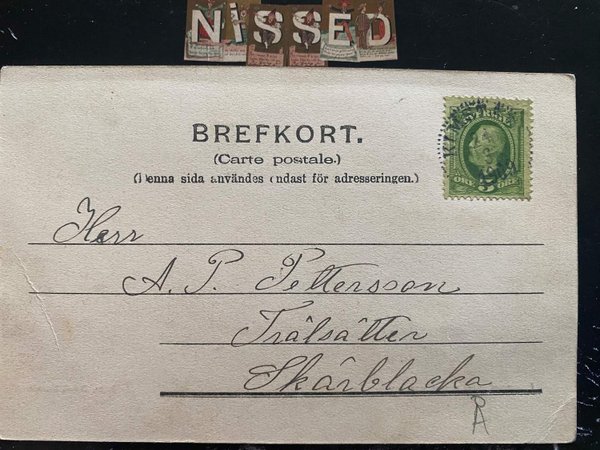 NiSSED
BREFKORT.
(Carte postale.)
(Denna sida användes endast för adresseringen.)
SVERIGE
5
ÖRE ÖRE
Herr
A. P. Pettersson
Trälsätter
Skärblacka
Å